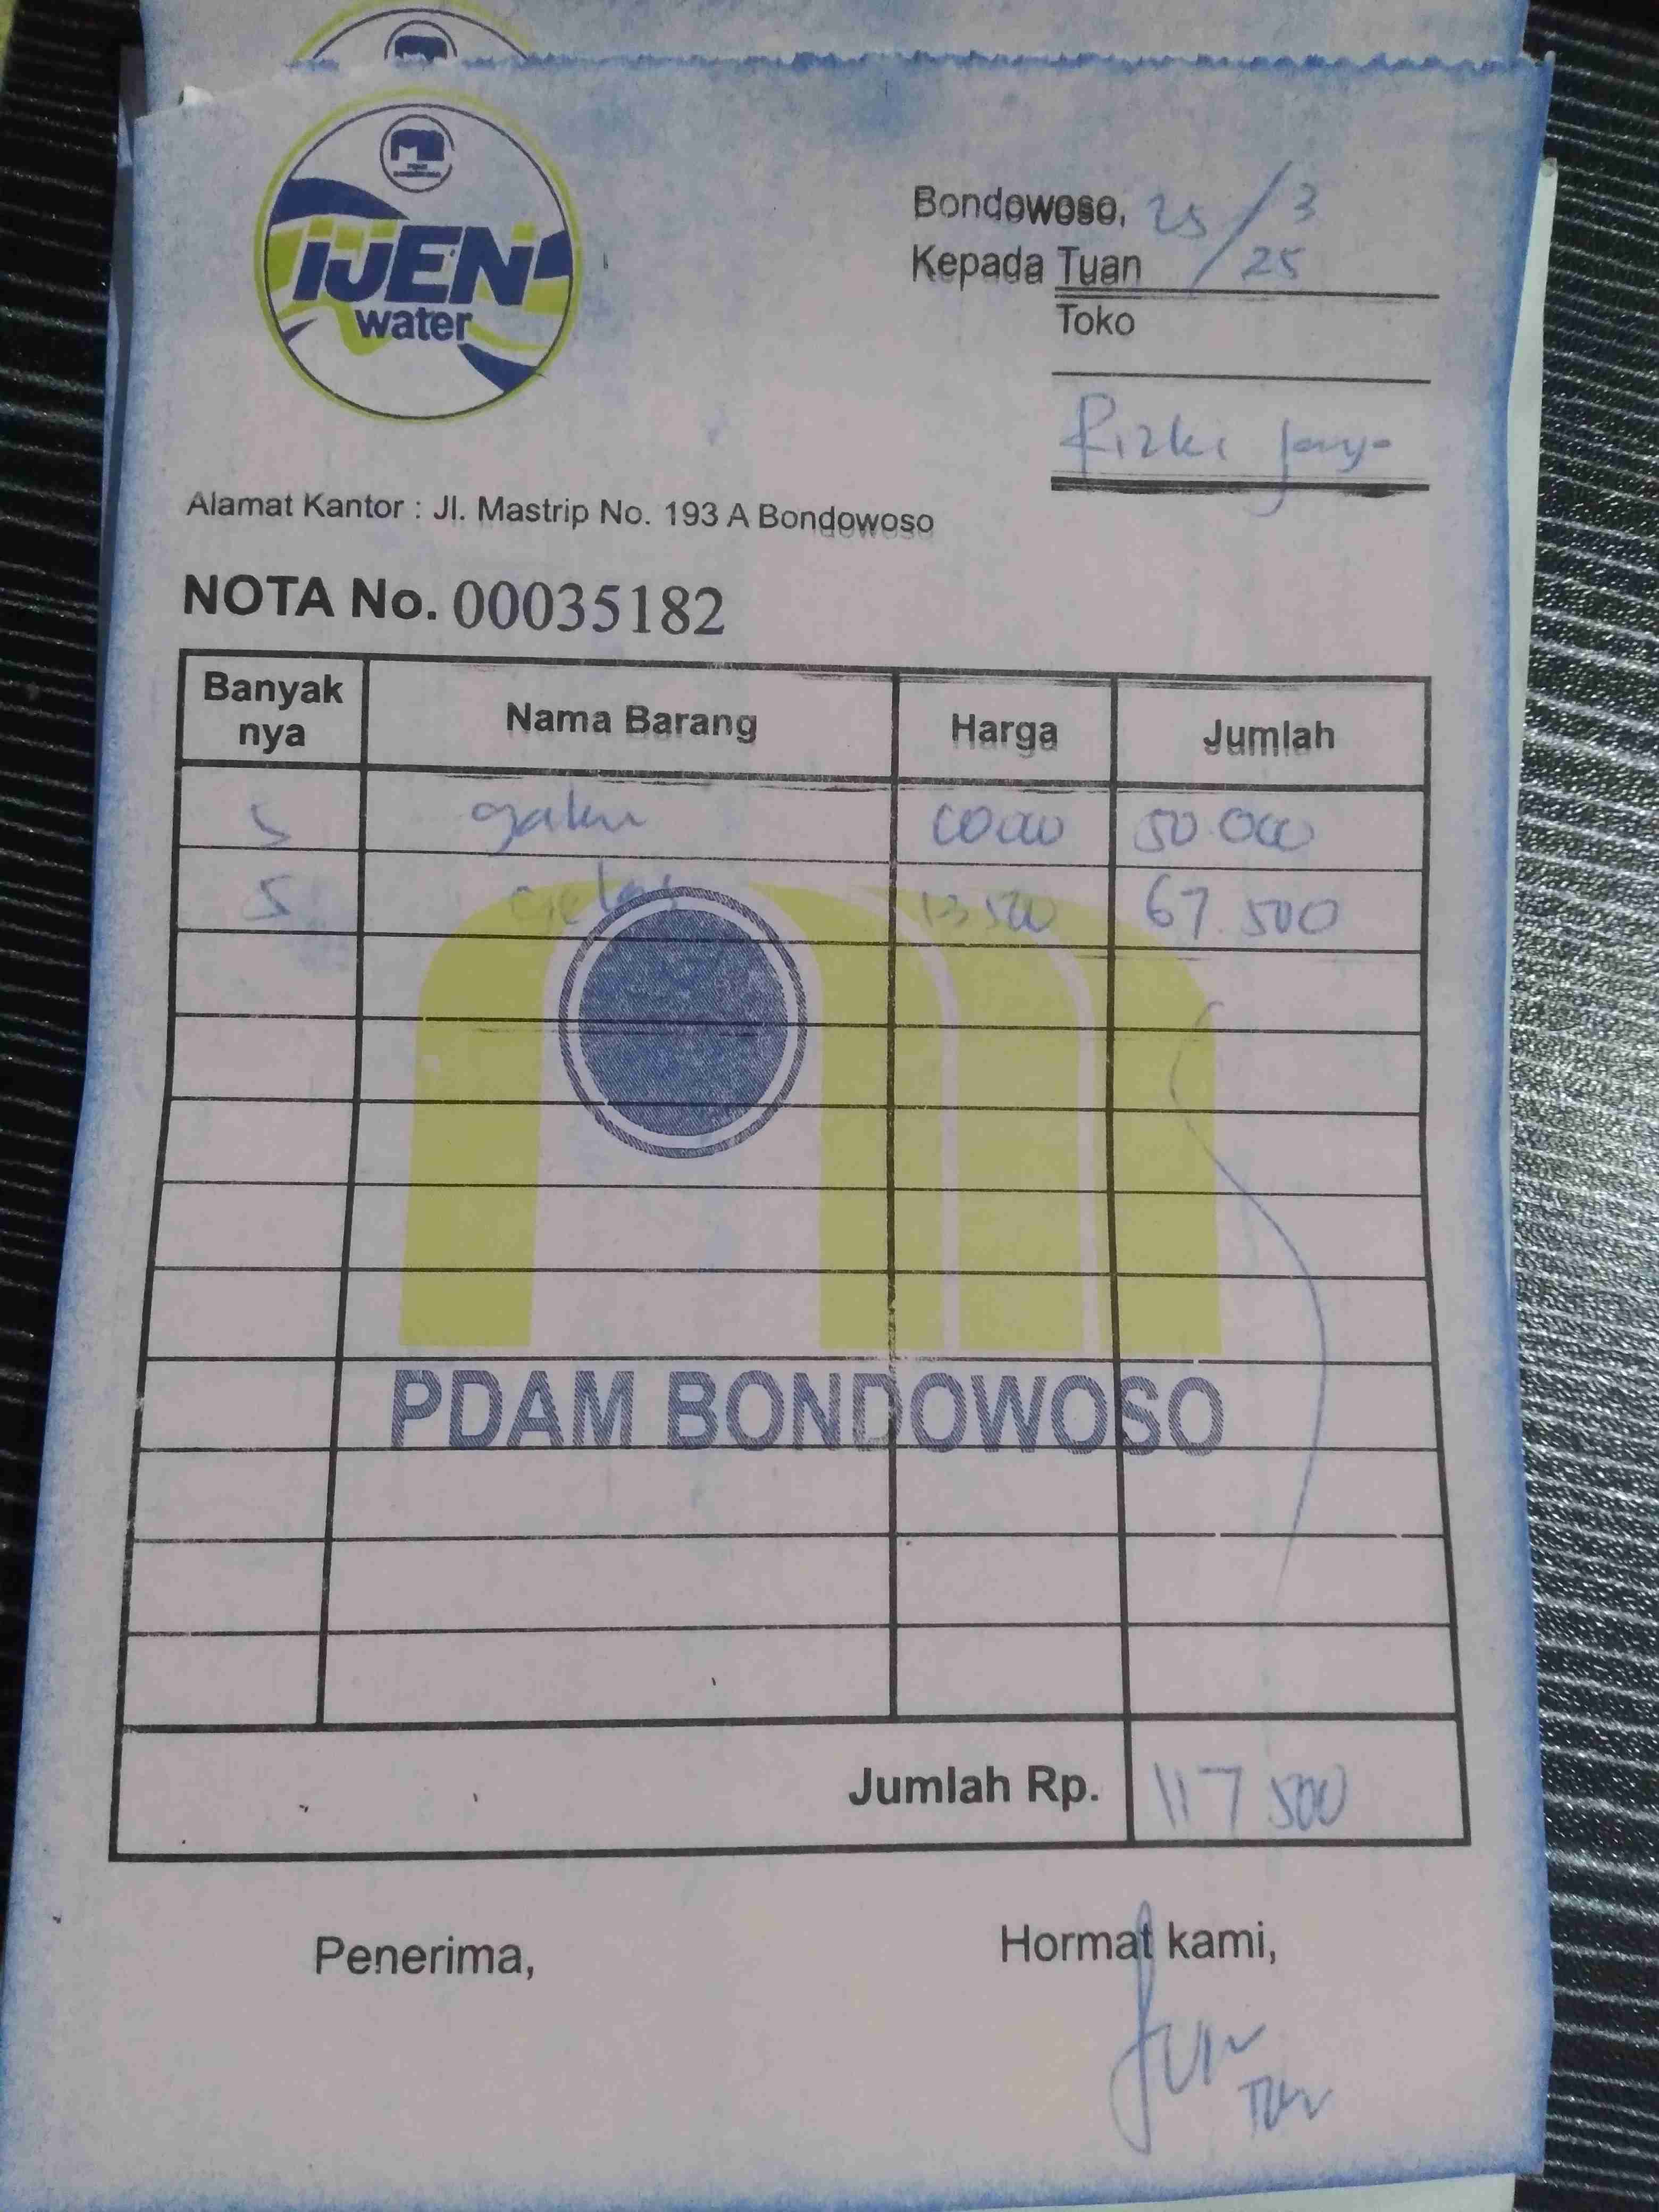 IJEN
water
Bondowoso, 25/3/25
Kepada Tuan
Toko
Rizki Jaya
Alamat Kantor : Jl. Mastrip No. 193 A Bondowoso
NOTA No. 00035182
Banyak nya Nama Barang Harga Jumlah
5 galon 10000 50.000
5 gelas 13500 67.500
PDAM BONDOWOSO
Jumlah Rp. 117 500
Penerima, Hormat kami,